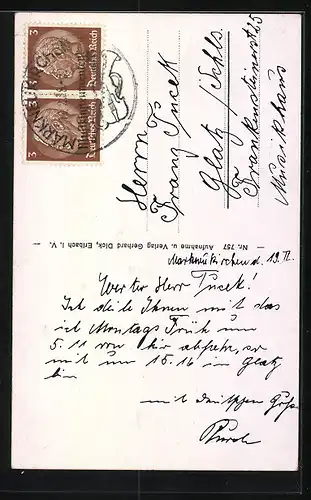 3 Deutsches Reich
3 Deutsches Reich
MARKNEUKIRCHEN
Herrn
Franz Tucek
Glatz / Schls.
Frankensteinerstr. 25
Musikhaus
— Nr. 757 Aufnahme u. Verlag Gerhard Dick, Erlbach i. V. —
Markneukirchen d. 19. II.
Werter Herr Tucek!
Ich teile Ihnen mit das
ich Montags Früh um
5.11 von hir abfahre, so
mit um 15.16 in Glatz
bin
mit deutschen Gruß